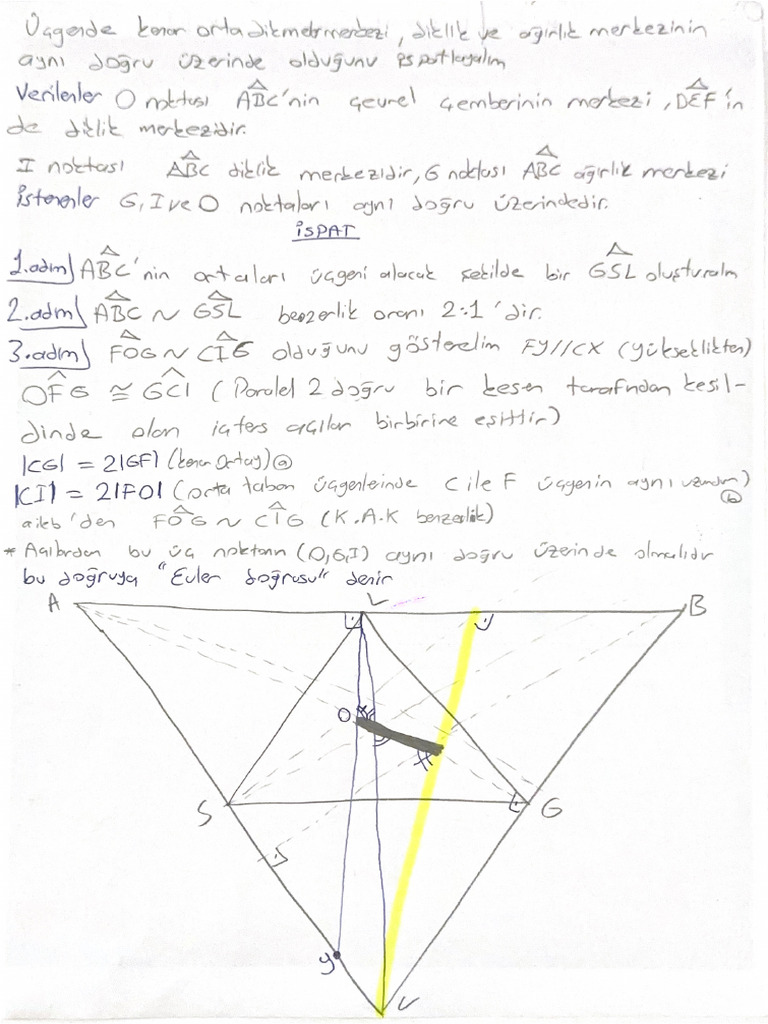 Üçgende kenar orta dikmelr merkezi, diklik ve ağırlık merkezinin
aynı doğru üzerinde olduğunu ispatlayalım
Verilenler O noktası ABC'nin çevrel çemberinin merkezi, DEF'in
de diklik merkezidir.
I noktası ABC diklik merkezidir, G noktası ABC ağırlık merkezi
İstenenler G, I ve O noktaları aynı doğru üzerindedir.
İSPAT
1.adım) ABC'nin ortaları üçgeni olacak şekilde bir GSL oluşturalım
2.adım) ABC ~ GSL benzerlik oranı 2:1'dir.
3.adım) FOG ~ CIG olduğunu gösterelim FY//CX (yükseklikten)
OFG ≅ GCI (Paralel 2 doğru bir kesen tarafından kesil-
dinde olan içters açıları birbirine eşittir)
|CG| = 2|GF| (kenar Ortay) a
|CI| = 2|FO| (orta taban üçgenlerinde C ile F üçgenin aynı)
b
FOG ~ CIG (K.A.K benzerlik)
* Açılardan bu üç noktanın (O,G,I) aynı doğru üzerinde olmalıdır
bu doğruya "Euler doğrusu" denir
A
L
B
O
S
G
y
C